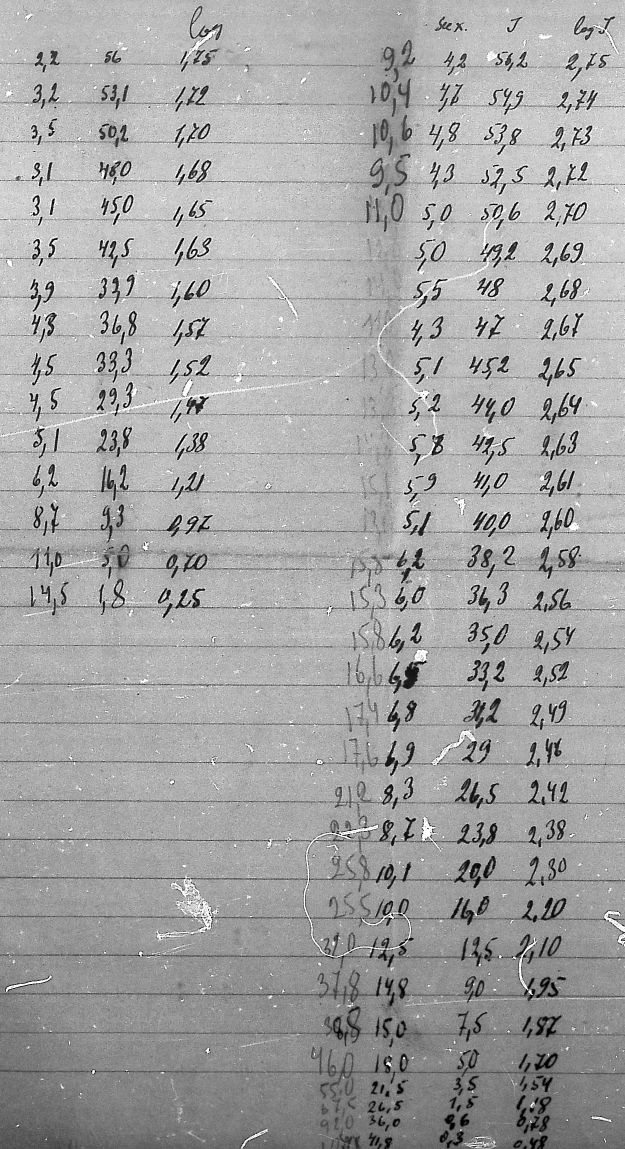 log
2,2 56 1,75
3,2 53,1 1,72
3,5 50,2 1,70
3,1 48,0 1,68
3,1 45,0 1,65
3,5 42,5 1,63
3,9 39,9 1,60
4,3 36,8 1,57
4,5 33,3 1,52
4,5 29,3 1,47
5,1 23,8 1,38
6,2 16,2 1,21
8,7 9,3 0,97
11,0 5,0 0,70
14,5 1,8 0,25
J log J
9,2 4,2 56,2 2,75
10,4 4,7 54,9 2,74
10,6 4,8 53,8 2,73
9,5 4,3 52,5 2,72
11,0 5,0 50,6 2,70
5,0 49,2 2,69
5,5 48 2,68
4,3 47 2,67
5,1 45,2 2,65
5,2 44,0 2,64
5,8 42,5 2,63
5,9 41,0 2,61
5,1 40,0 2,60
15,8 6,2 38,2 2,58
15,3 6,0 36,3 2,56
15,8 6,2 35,0 2,54
16,6 6,5 33,2 2,52
17,4 6,8 31,2 2,49
17,6 6,9 29 2,46
21,2 8,3 26,5 2,42
22,3 8,7 23,8 2,38
25,8 10,1 20,0 2,30
25,5 10,0 16,0 2,20
32,0 12,5 12,5 2,10
37,8 14,8 9,0 1,95
38,8 15,0 7,5 1,87
46,0 18,0 5,0 1,70
55,0 21,5 3,5 1,54
67,5 26,5 1,5 1,18
92,0 36,0 0,6 0,78
41,8 0,3 0,48